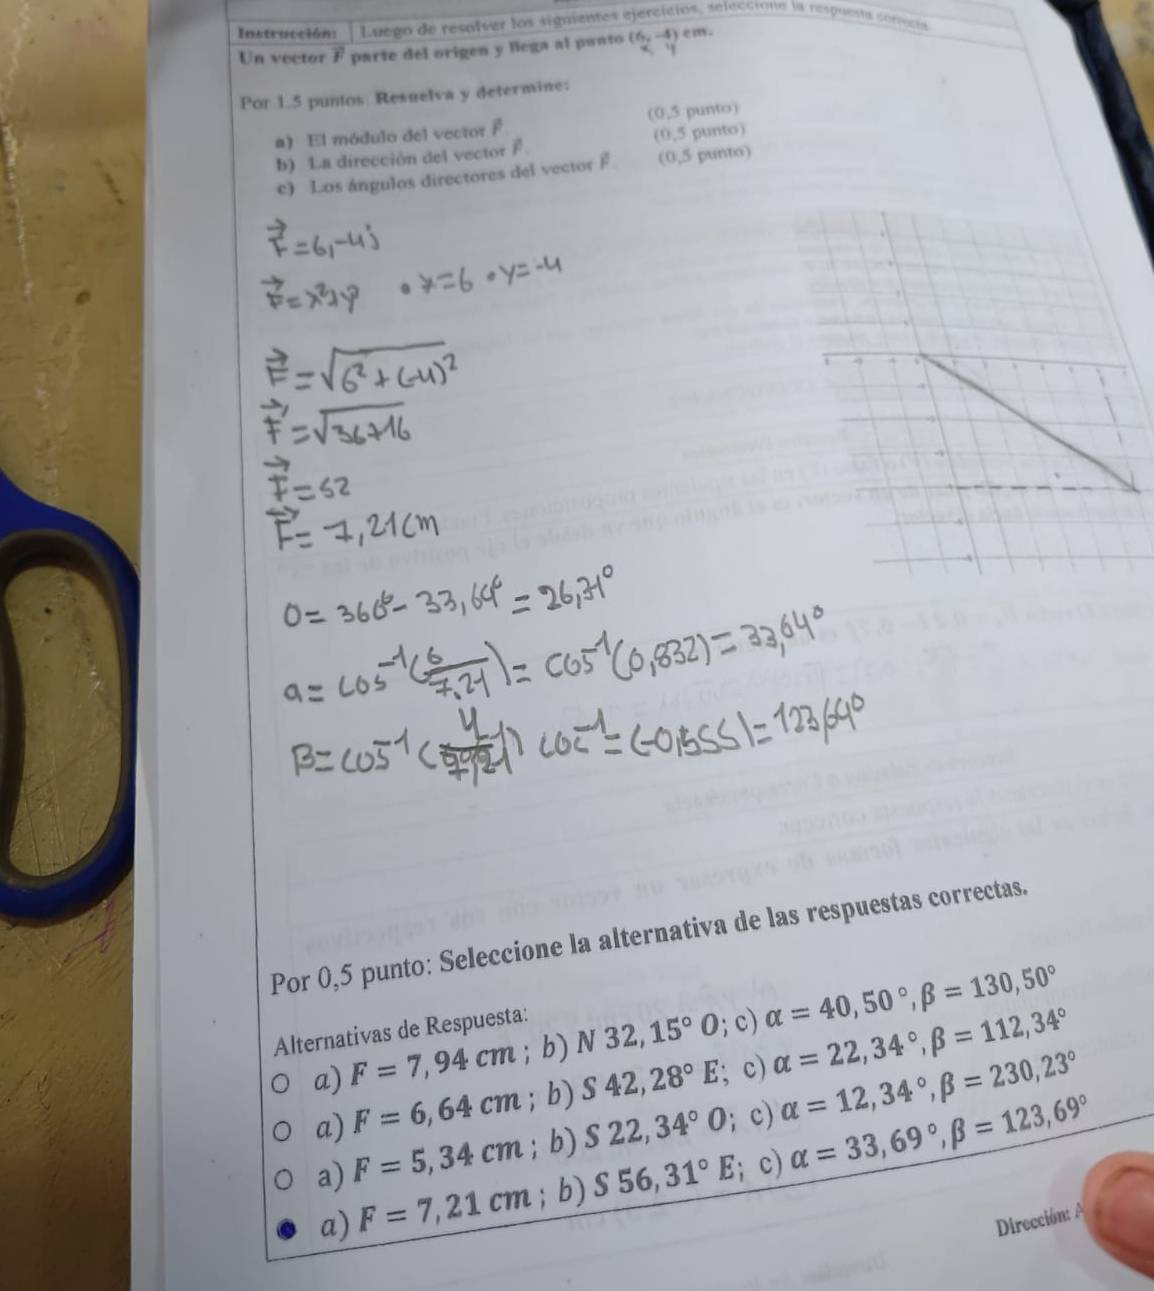 Instrucción: Luego de resolver los siguientes ejercicios, seleccione la respuesta correcta
Un vector F⃗ parte del origen y llega al punto (6, -4) cm.
x y
Por 1.5 puntos: Resuelva y determine:
a) El módulo del vector F⃗. (0,5 punto)
b) La dirección del vector F⃗. (0,5 punto)
c) Los ángulos directores del vector F⃗. (0,5 punto)
F⃗ = 6, -4j
F⃗ = x²+y² • x=6 • y=-4
F⃗ = √6² + (-4)²
F⃗ = √36+16
F⃗ = 52
F⃗ = 7,21cm
0 = 360° - 33,69° = 26,31°
a = cos⁻¹(6/7,21) = cos⁻¹(0,832) = 33,64°
B = cos⁻¹(4/7,21) cos⁻¹ = (-0,555) = 123,69°
Por 0,5 punto: Seleccione la alternativa de las respuestas correctas.
Alternativas de Respuesta:
a) F = 7,94 cm ; b) N 32,15° O; c) α = 40,50°, β = 130,50°
a) F = 6,64 cm ; b) S 42,28° E; c) α = 22,34°, β = 112,34°
a) F = 5,34 cm ; b) S 22,34° O; c) α = 12,34°, β = 230,23°
a) F = 7,21 cm ; b) S 56,31° E; c) α = 33,69°, β = 123,69°
Dirección: